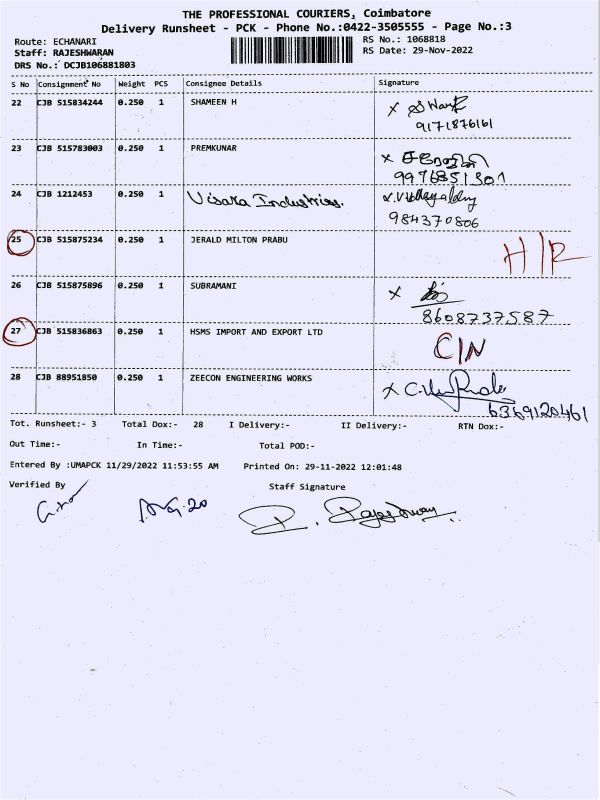 THE PROFESSIONAL COURIERS, Coimbatore
Delivery Runsheet - PCK - Phone No.:0422-3505555 - Page No.:3
Route: ECHANARI
Staff: RAJESHWARAN
DRS No.: DCJB106881803
RS No.: 1068818
RS Date: 29-Nov-2022
S No Consignment No Weight PCS Consignee Details Signature
22 CJB 515834244 0.250 1 SHAMEEN H
9171876161
23 CJB 515783003 0.250 1 PREMKUNAR
9976851301
24 CJB 1212453 0.250 1 Visara Industries.
984370806
25 CJB 515875234 0.250 1 JERALD MILTON PRABU H/R
26 CJB 515875896 0.250 1 SUBRAMANI
8608737587
27 CJB 515836863 0.250 1 HSMS IMPORT AND EXPORT LTD C/N
28 CJB 88951850 0.250 1 ZEECON ENGINEERING WORKS
6369120461
Tot. Runsheet:- 3 Total Dox:- 28 I Delivery:- II Delivery:- RTN Dox:-
Out Time:- In Time:- Total POD:-
Entered By :UMAPCK 11/29/2022 11:53:55 AM Printed On: 29-11-2022 12:01:48
Verified By Staff Signature